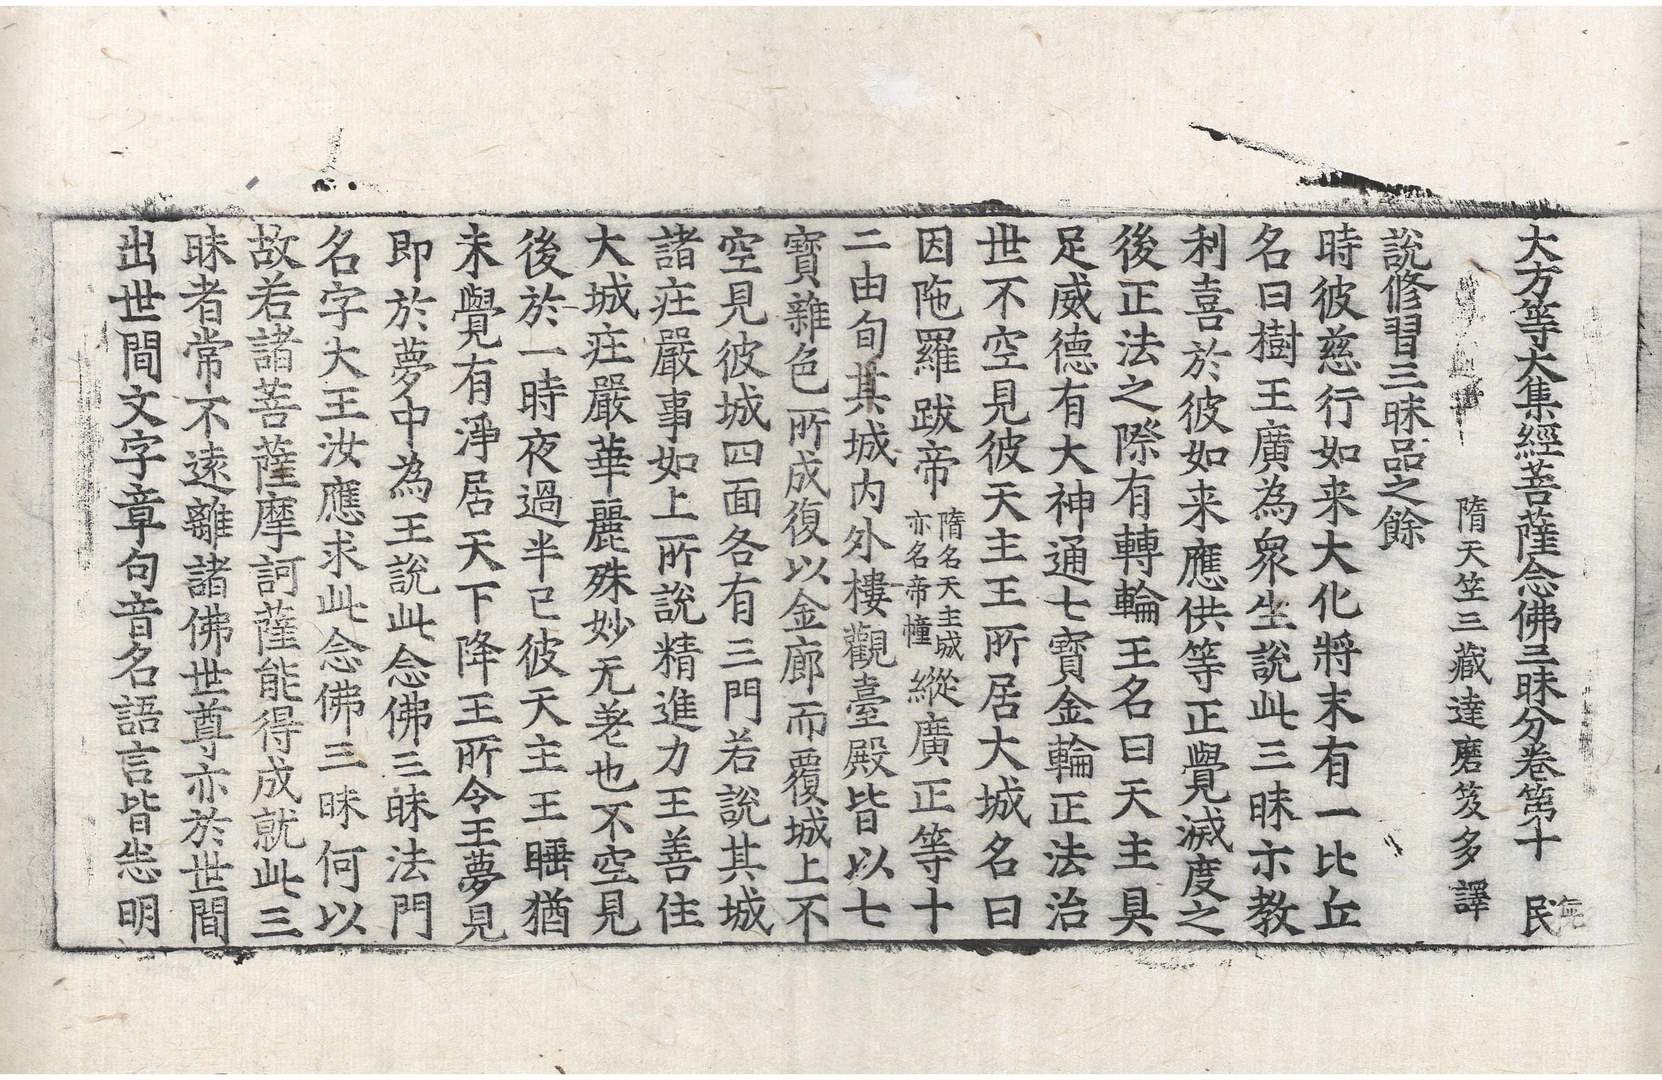 大方等大集經菩薩念佛三昧分卷第十 民
隋天竺三藏達磨笈多譯
說修習三昧品之餘
時彼慈行如来大化將末有一比丘
名曰樹王廣為衆生說此三昧示教
利喜於彼如来應供等正覺滅度之
後正法之際有轉輪王名曰天主具
足威德有大神通七寶金輪正法治
世不空見彼天主王所居大城名曰
因陁羅跋帝隋名天主城亦名帝幢縱廣正等十
二由旬其城內外樓觀臺殿皆以七
寶雜色所成復以金廊而覆城上不
空見彼城四面各有三門若說其城
諸庄嚴事如上所說精進力王善住
大城庄嚴華麗殊妙无差也不空見
後於一時夜過半已彼天主王睡猶
未覺有淨居天下降王所令王夢見
即於夢中為王說此念佛三昧法門
名字大王汝應求此念佛三昧何以
故若諸菩薩摩訶薩能得成就此三
昧者常不遠離諸佛世尊亦於世間
出世間文字章句音名語言皆悉明